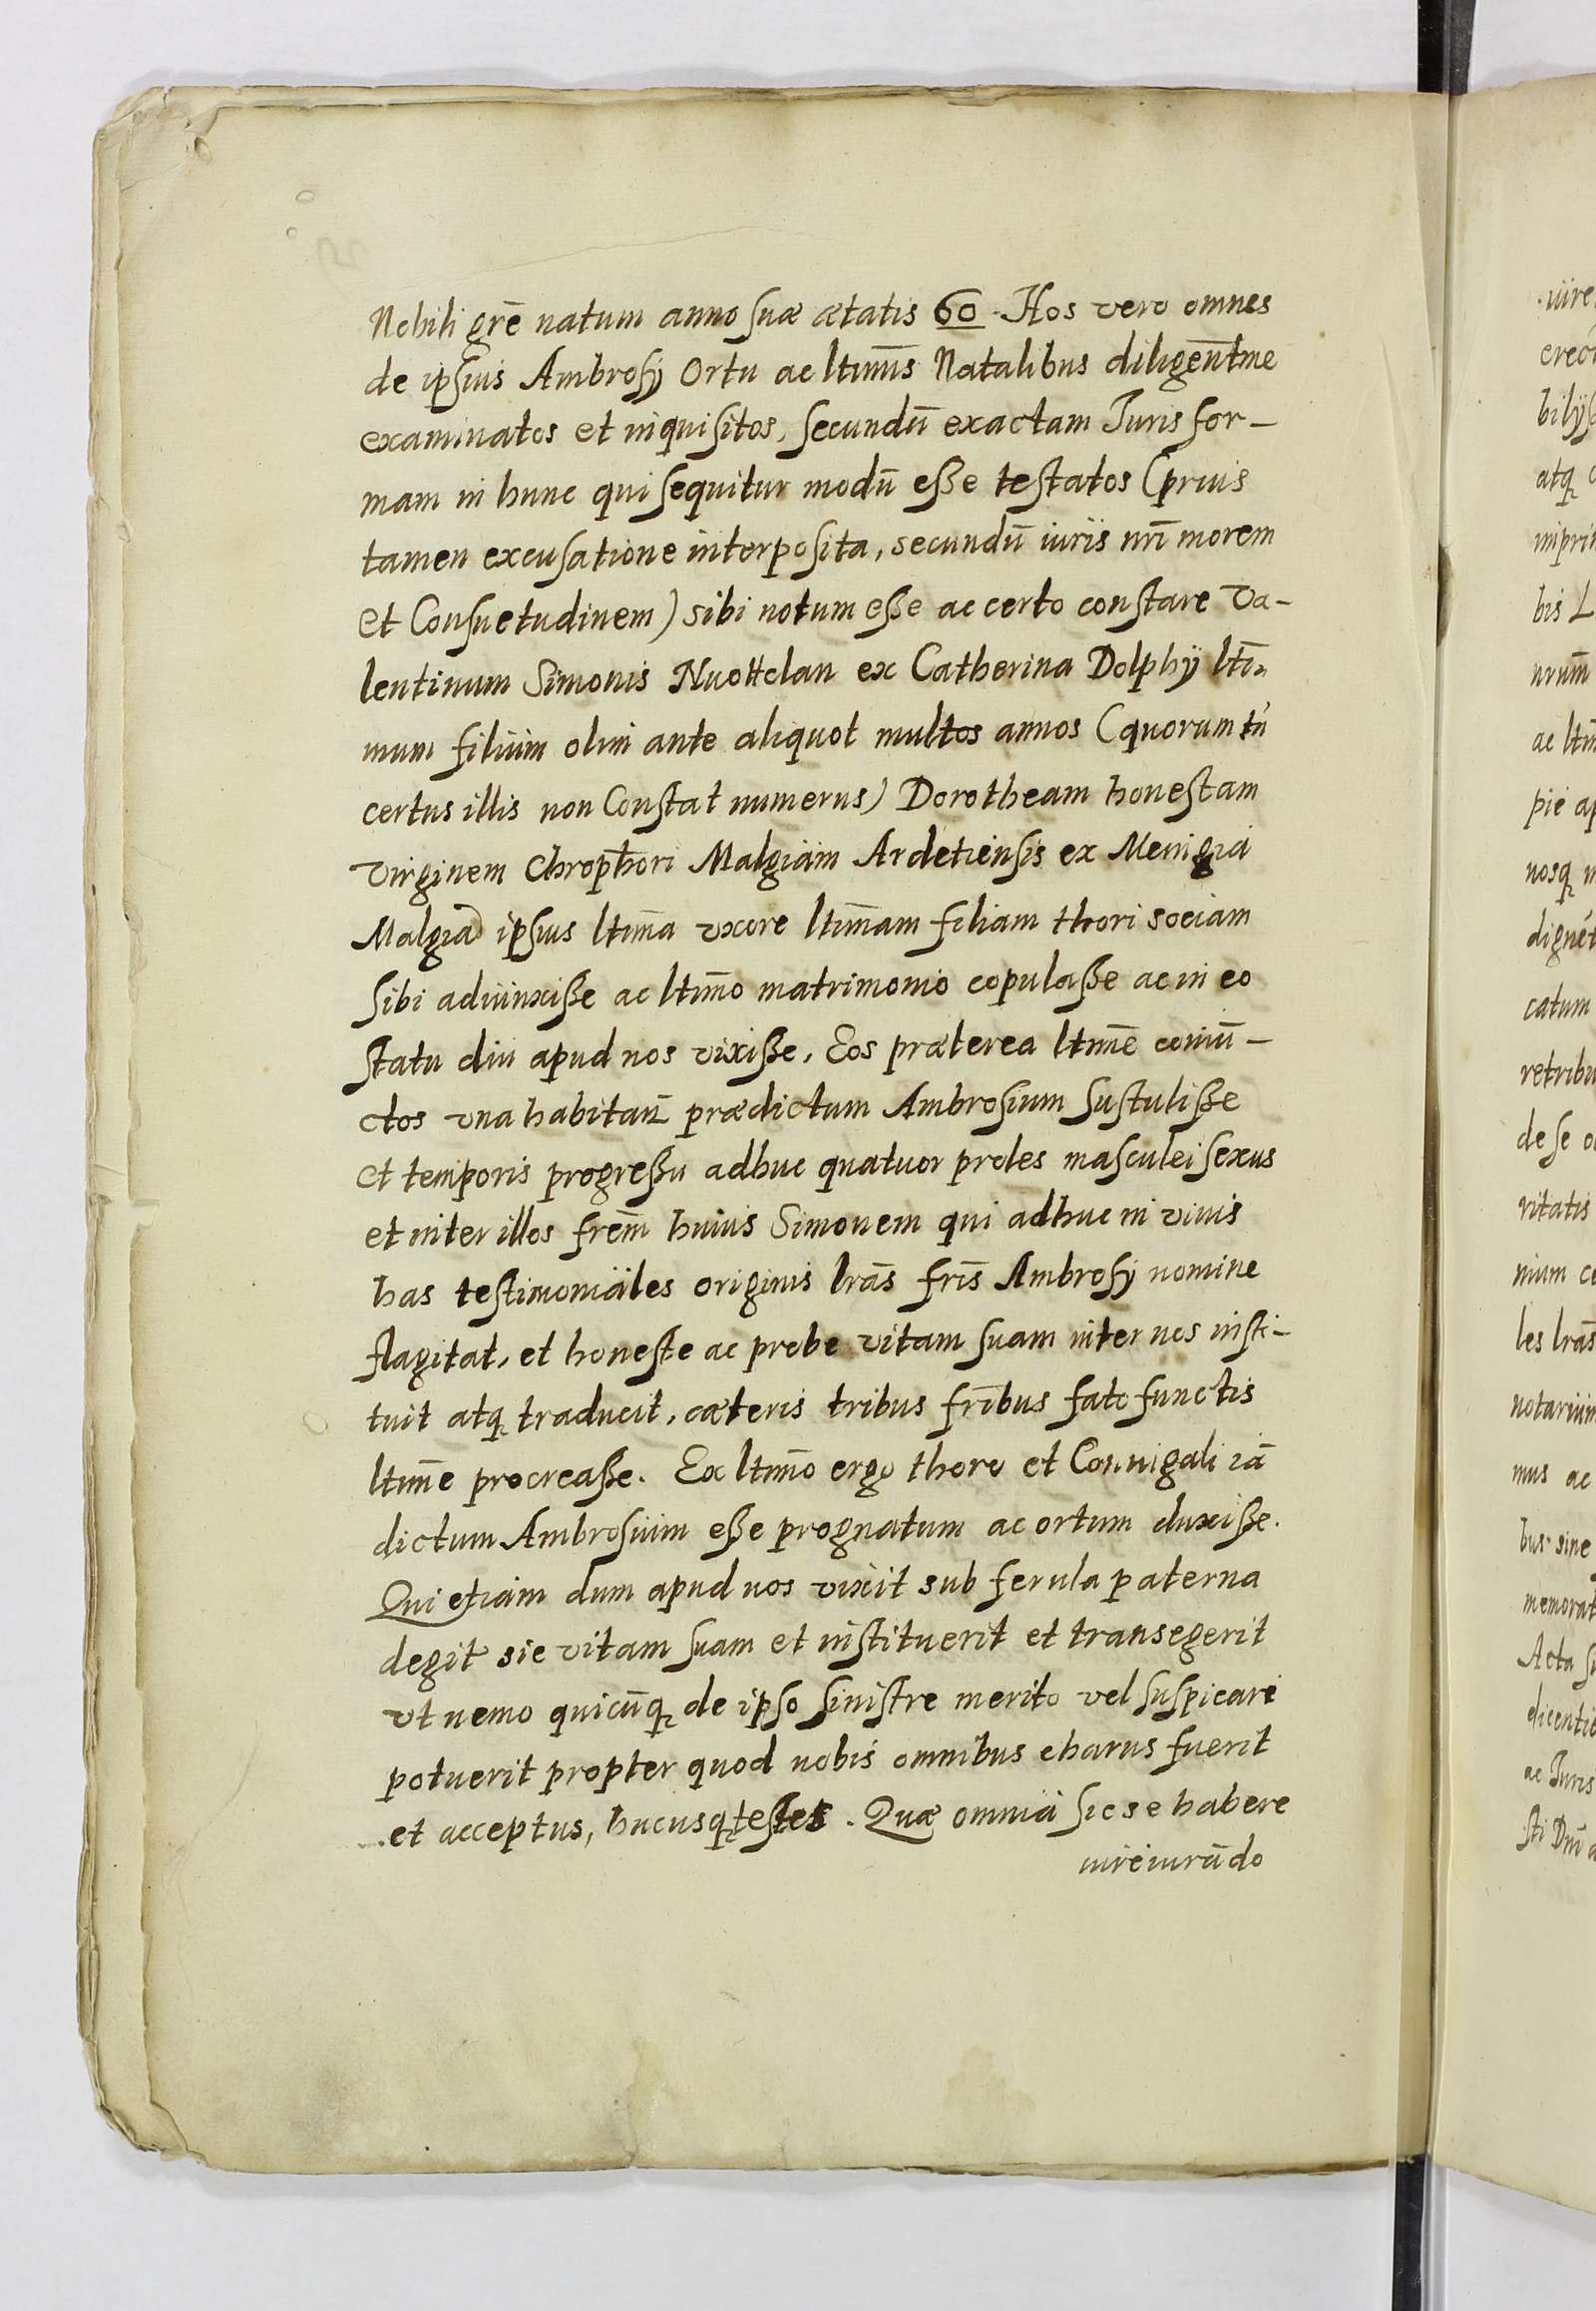 Nobili grē natum anno suæ ætatis 60. Hos vero omnes
de ipsius Ambrosij Ortu ac ltimis̄ Natalibus diligent̄me
examinatos et inquisitos, secundū exactam Iuris for-
mam in hunc qui sequitur modū esse testatos (prius
tamen excusatione interposita, secundū iuris nrī morem
et Consuetudinem) sibi notum esse ac certo constare Va-
lentinum Simonis Nuottclan ex Catherina Dolphÿ ltī-
mum filium olim ante aliquot multos annos (quorum tn̄
certus illis non Constat numerus) Dorotheam honestam
virginem Chrophori Malgiam Ardetiensis ex Menigia
Malgia ipsius ltim̄a vxore ltim̄am filiam thori sociam
sibi adiunxisse ac ltim̄o matrimonio copulasse ac in eo
statu diu apud nos vixisse. Eos præterea ltim̄e coniū-
ctos vna habitan̄ prædictum Ambrosium sustulisse
et temporis progressu adhuc quatuor proles masculei sexus
et inter illos frem̄ huius Simonem qui adhuc in viuis
has testimoniales originis lrās frīs Ambrosij nomine
flagitat, et honeste ac probe vitam suam inter nos insti-
tuit atq traducit, cæteris tribus frībus fato functis
ltim̄e procreasse. Ex ltim̄o ergo thoro et Coniugali iā
dictum Ambrosium esse prognatum ac ortum duxisse.
Qui etiam dum apud nos vixit sub ferula paterna
degit sic vitam suam et instituerit et transegerit
vt nemo quicūq de ipso sinistre merito vel suspicari
potuerit propter quod nobis omnibus charus fuerit
et acceptus, hucusq testes. Quæ omnia sic se habere
iureiurādo
·iure
erect
bilÿs
atq
imprim
bis L
nrum̄
ac ltim
pie ap
nosq
dignet
catum
retribu
de se
ritatis
nium
les lrās
notarium
mus ac
bus sine
memorat
Acta
dicenti
ac Iuris
sti Dnī